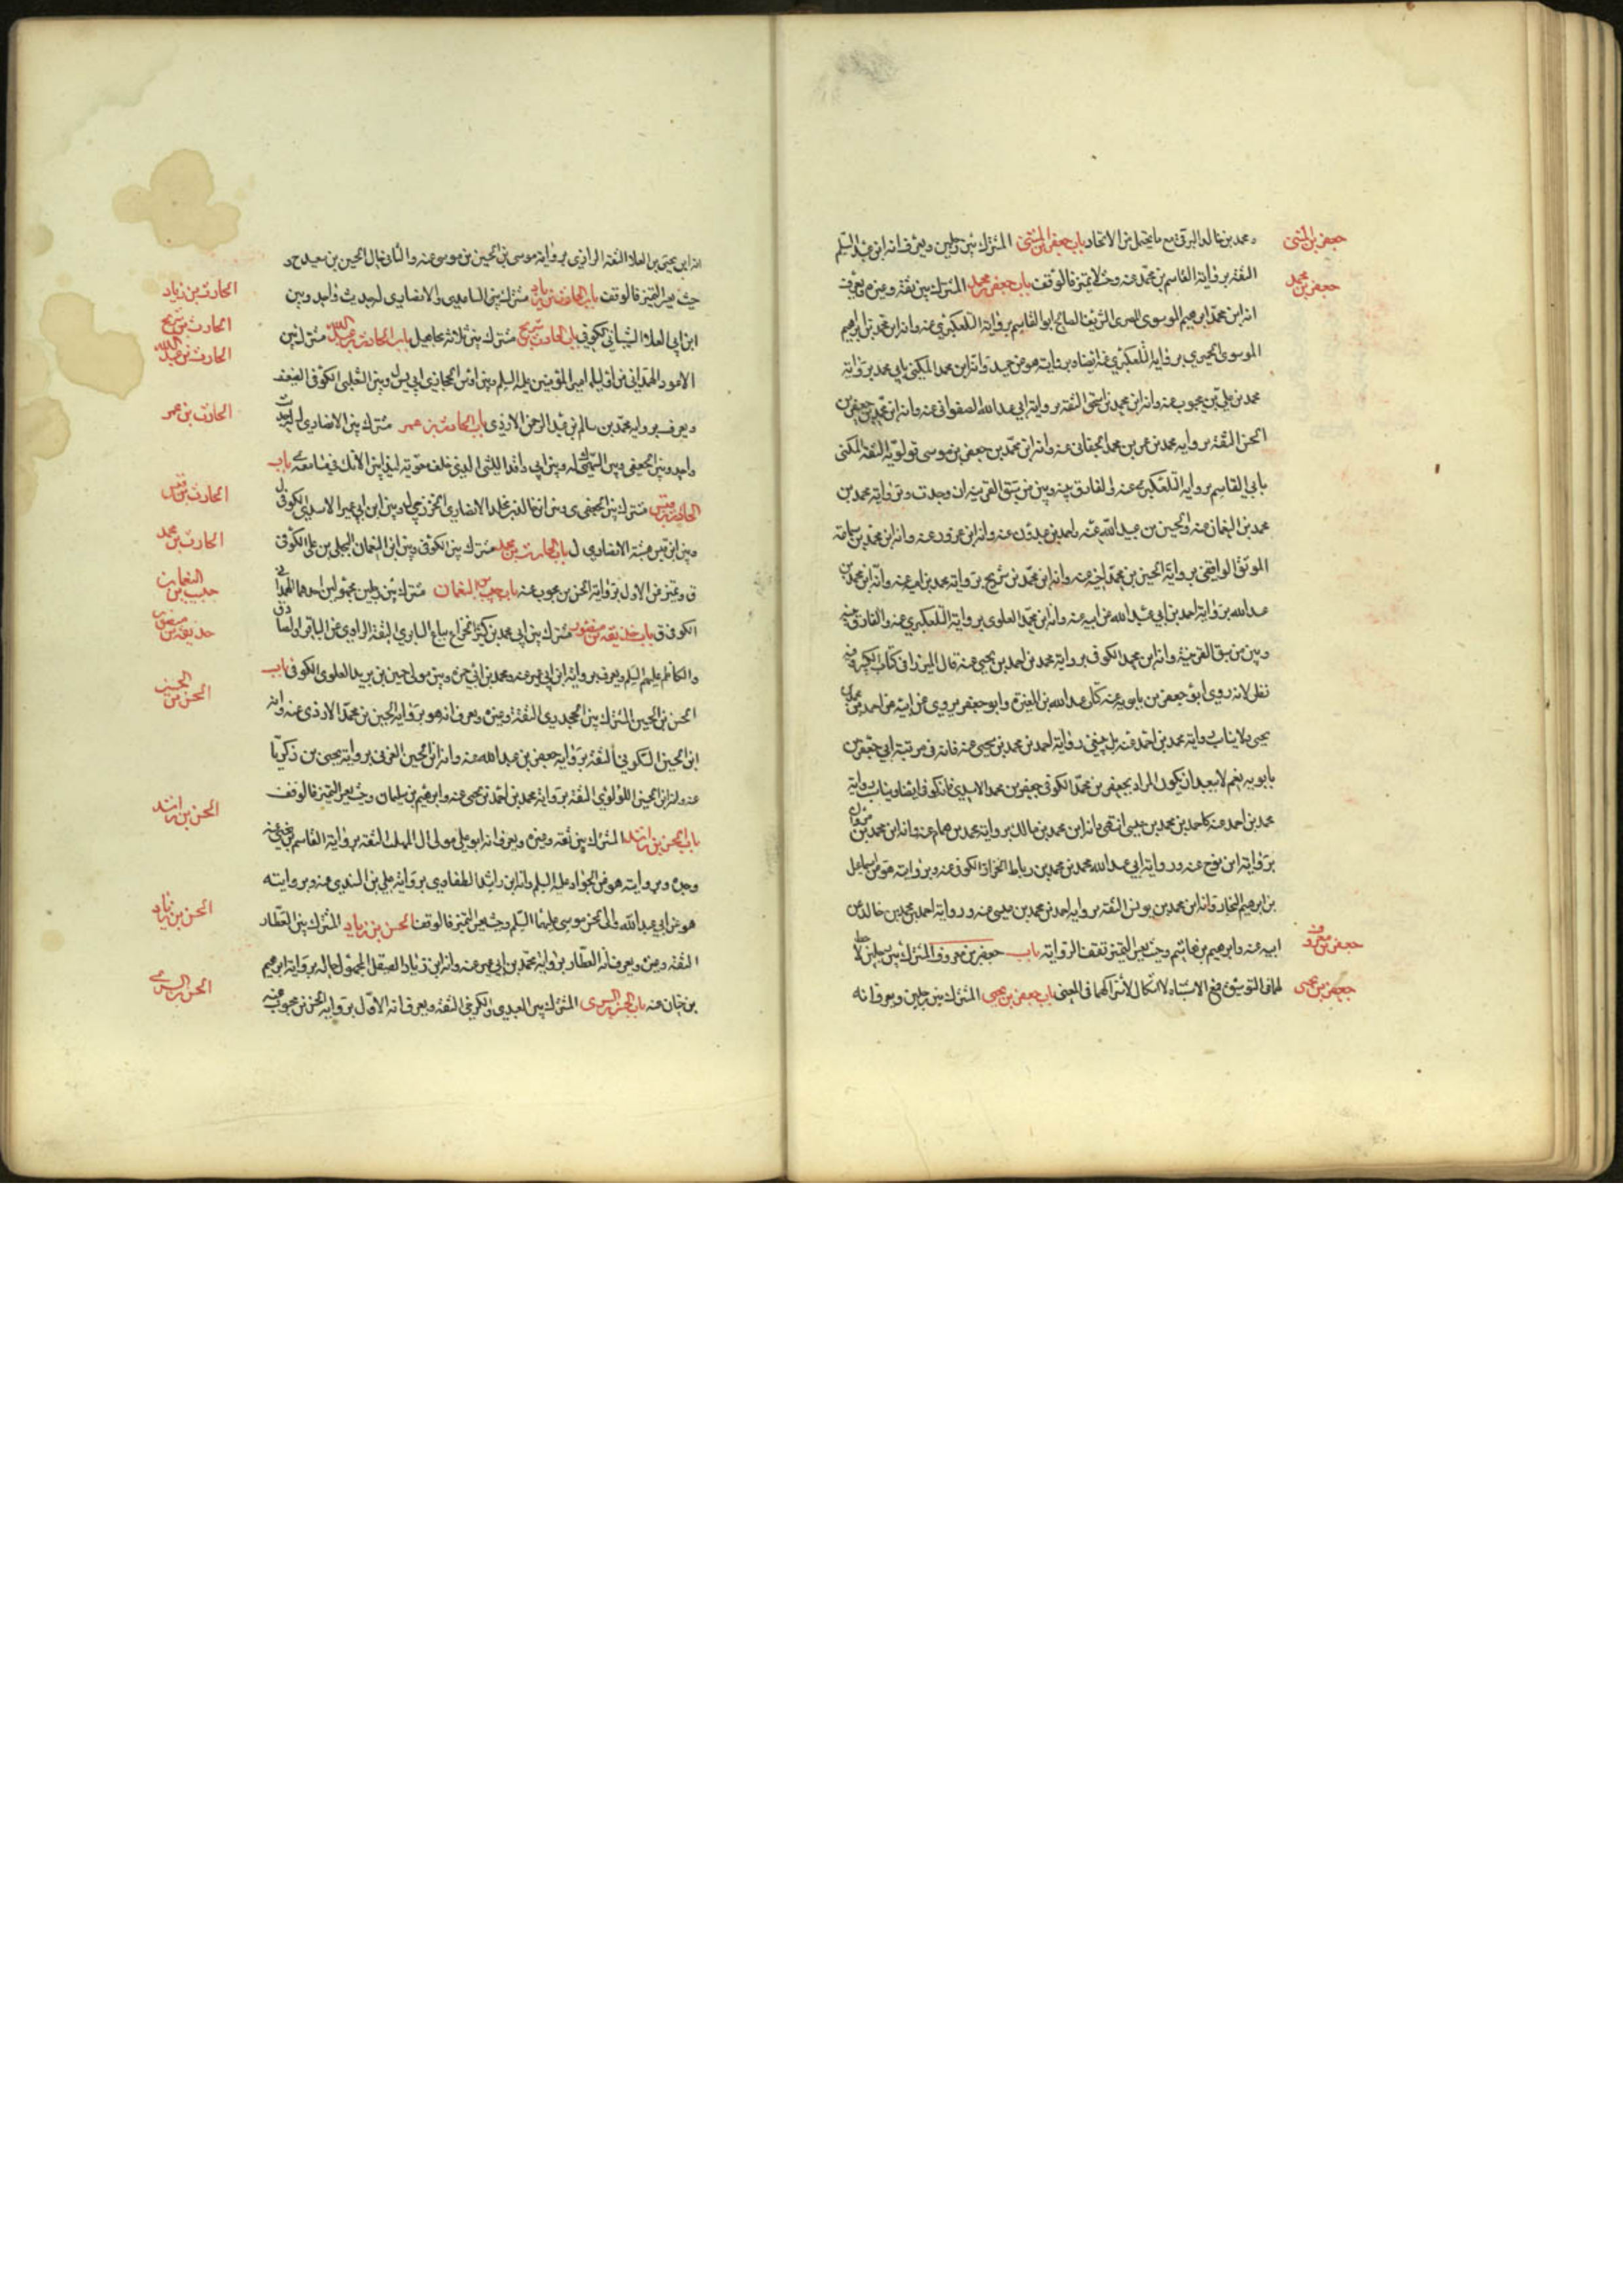 جعفر بن المثنى
ومحمد بن خالد البرقي مع ما يحتمل من الاتحاد باب جعفر بن المثنى المشترك بين رجلين ويعرف انه ابن عبد السلم
جعفر بن محمد
الثقة برواية القاسم بن محمد عنه وحيث لا تميز فالوقف باب جعفر بن محمد المشترك بين ثقة وغيره ويعرف
انه ابن محمد بن ابرهيم الموسوي المصري الشريف الصالح ابو القاسم برواية التلعكبري عنه وانه ابن محمد بن ابرهيم
الموسوي الحيري برواية التلعكبري عنه ايضا وبروايته هو من حميد وانه ابن محمد المكنى بابي محمد برواية
محمد بن علي بن محبوب عنه وانه ابن محمد بن اسحق الثقة برواية ابي عبد الله الصفواني عنه وانه ابن محمد بن جعفر بن
الحسن الثقة برواية محمد بن عمر بن محمد الجعابي عنه وانه ابن محمد بن جعفر بن موسى قولويه الثقة المكنى
بابي القاسم برواية التلعكبري عنه والفارق بينه وبين من سبق القرينة ان وجدت وبرواية محمد بن
محمد بن النعمان عنه والحسين بن عبيد الله عنه واحمد بن عبدون عنه وانه ابن عزور عنه وانه ابن محمد بن سماعة
الموثق الواقفي برواية الحسين بن محمد اخيه عنه وانه ابن محمد بن شريح برواية محمد بن عنه وانه ابن محمد بن
عبد الله برواية احمد بن ابي عبد الله عن ابيه عنه وانه ابن محمد العلوي برواية التلعكبري عنه والفارق بينه
وبين من سبق القرينة وانه ابن محمد الكوفي برواية محمد بن احمد بن يحيى عنه قال الميرزا في كتاب الكبير فيه
نظر لانه روى ابو جعفر بن بابويه عنه عن عبد الله بن المغيرة وابو جعفر يروي عن ابيه عن احمد بن محمد بن
يحيى فلا يناسب رواية محمد بن احمد عنه بل ينبغي رواية احمد بن محمد بن يحيى عنه فانه في مرتبة ابي جعفر بن
بابويه نعم لا يبعد ان يكون المراد بجعفر بن محمد الكوفي جعفر بن محمد الاسدي فانه كوفي ايضا ويناسب رواية
محمد بن احمد عنه كاحمد بن محمد بن عيسى انتهى وانه ابن محمد بن مالك برواية محمد بن همام عنه وانه ابن محمد بن
برواية ابن نوح عنه ورواية ابي عبد الله محمد بن محمد بن رباط الخزاز الكوفي عنه وبروايته هو من اسماعيل
بن ابرهيم النجار وانه ابن محمد بن يونس الثقة برواية احمد بن محمد بن عيسى عنه ورواية احمد بن محمد بن خالد عن
جعفر بن معروف
ابيه عنه وابرهيم بن هاشم وحيث يعسر التميز تقف الرواية باب جعفر بن معروف المشترك بين رجلين لا حظ
جعفر بن يحيى
لهما في التوثيق فمع الاشتباه لا اشكال لاشتراكهما في المعنى باب جعفر بن يحيى المشترك بين رجلين ويعرف انه
انه ابن يحيى بن العلا الثقة الرازي برواية موسى بن الحسين بن موسى عنه والثاني خال الحسين بن سعيد ح و
الحارث بن زياد
حيث يعسر التميز فالوقف باب الحارث بن زياد مشترك بين الساعدي والانصاري له حديث واحد وبين
الحارث بن شريح
ابن ابي العلا الشيباني الكوفي باب الحارث بن شريح مشترك بين ثلاثة مجاهيل باب الحارث بن عبد الله مشترك بين
الحارث بن عبد الله
الاعور الهمداني من اوليا امير المؤمنين عليه السلم وبين اوس الحجازي ابي يس ل وبين الثعلبي الكوفي الضعيف
الحارث بن عمر
ويعرف برواية محمد بن سالم بن عبد الرحمن الازدي باب الحارث بن عمر مشترك بين الانصاري له حديث
واحد وبين الجعفي وبين السهمي له وبين ابي واقد الليثي باب
الحارث بن قيس
الحارث بن قيس مشترك بين الجهني ى وبين ابن خالد بن مخلد الانصاري الخزرجي ل وبين ابن ابي عمير الاسدي الكوفي ل
الحارث بن محمد
وبين ابن قيس الانصاري ل باب الحارث بن محمد مشترك بين الكوفي وبين ابن النعمان البجلي بن علي الكوفي
حبيب بن النعمان
ق وتميز من الاول برواية الحسن بن محبوب عنه باب حبيب بن النعمان مشترك بين رجلين مجهولين احدهما الهمداني
حذيفة بن منصور
الكوفي ق باب حذيفة بن منصور مشترك بين ابي محمد بن كثير الخزاعي بياع السابري الثقة الراوي عن الباقر والصادق
والكاظم عليهم السلم ويعرف برواية ابن ابي عمير عنه ومحمد بن ابي حمزة وبين مولى حسين بن يزيد العلوي الكوفي باب
الحسن بن الحسين
الحسن بن الحسين المشترك بين الجحدري الثقة وغيره ويعرف انه هو برواية الحسين بن محمد الازدي عنه وانه
ابن الحسين السكوني الثقة برواية جعفر بن عبد الله عنه وانه ابن الحسين العرني برواية يحيى بن زكريا
عنه وانه ابن الحسين اللؤلؤي الثقة برواية محمد بن احمد بن يحيى عنه وابرهيم بن سليمان وحيث يعسر التميز فالوقف
الحسن بن راشد
باب الحسن بن راشد المشترك بين ثقة وغيره ويعرف انه ابو علي مولى ال المهلب الثقة برواية القاسم بن يحيى عنه
وجده وبروايته هو عن الجواد عليه السلم وانه ابن راشد الطفاوي برواية علي بن السندي عنه وبروايته
الحسن بن زياد
هو عن ابي عبد الله والى الحسن موسى عليهما السلم وحيث يعسر التميز فالوقف الحسن بن زياد المشترك بين العطار
الثقة وغيره ويعرف انه العطار برواية محمد بن ابي عمير عنه وانه ابن زياد الصيقل المجهول حاله برواية ابرهيم
الحسن بن السري
بن حيان عنه باب الحسن بن السري المشترك بين العبدي والكرخي الثقة ويعرف انه الاول برواية الحسن بن محبوب عنه